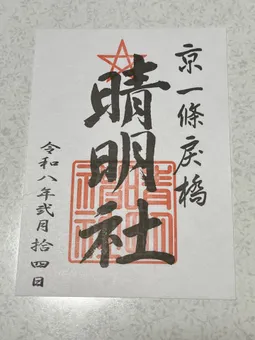 京一條戻橋
晴明社
令和八年弐月拾四日